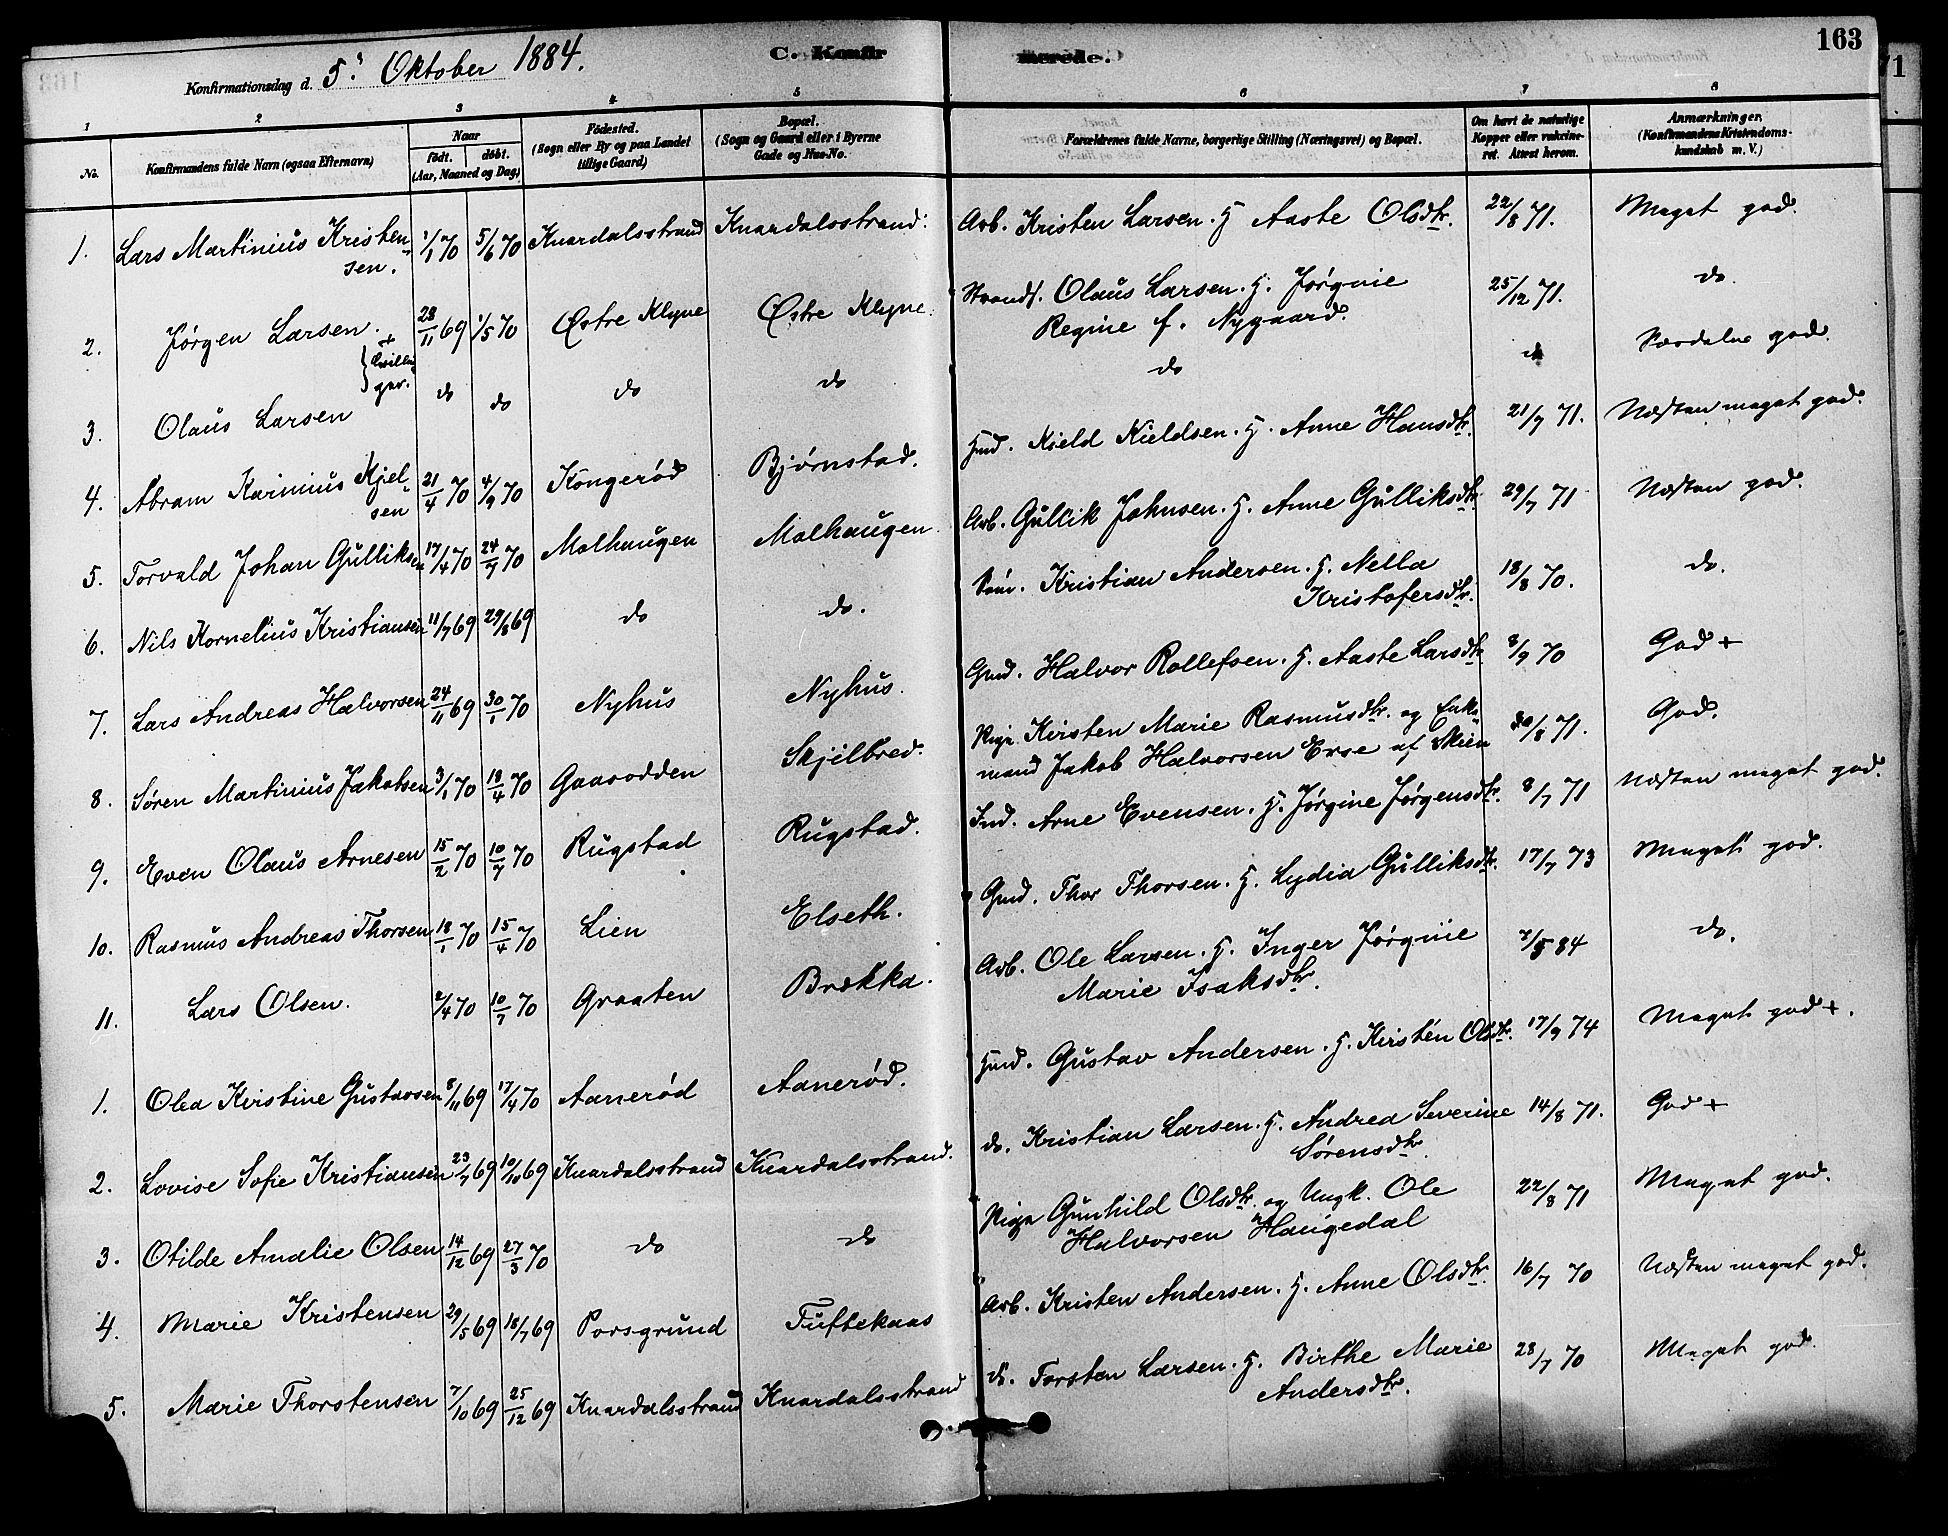 163
71
Konfirmationsdag d. 5' Oktober 1884.
C. Konfirmerede.
1 2 3 4 5 6 7 8
No.
Konfirmandens fulde Navn (ogsaa Efternavn)
Naar
født. døbt.
(Aar, Maaned og Dag)
Fødested.
(Sogn eller By og paa Landet
tillige Gaard)
Bopæl.
(Sogn og Gaard eller i Byerne
Gade og Hus-No.
Forældrenes fulde Navne, borgerlige Stilling (Næringsvei) og Bopæl.
Om havt de naturlige
Kopper eller vakcine-
ret. Attest herom.
Anmærkninger.
(Konfirmandens Kristendoms-
kundskab m. V.)
1. Lars Martinius Kristen- 1/1 70 5/6 70 Knardalsstrand Knardalsstrand. Arb. Kristen Larsen. H Aaste Olsdtr. 22/8 71. Meget god.
sen.
2. Jørgen Larsen. + 28/11 69 1/5 70 Østre Klyve Østre Klyve. Strands. Olaus Larsen. H. Jørgine 25/12 71. do
Regine f. Nygaard.
} Tvillin
ger.
3. Olaus Larsen do do do do do do Særdeles god.
4. Abram Karinius Kjel- 21/4 70 4/9 70 Kongerød Bjørnstad. Hmd. Kield Kieldsen. H. Anne Hansdtr. 21/7 71. Næsten meget god.
sen
5. Torvald Johan Gulliksen 17/4 70 24/7 70 Molhaugen Molhaugen Arb. Gullik Johnsen. H. Anne Gulliksdtr. 29/7 71 Næsten god.
6. Nils Kornelius Kristiansen 11/7 69 29/8 69 do do. Søm. Kristian Andersen. H. Nella 18/8 70. do.
Kristofersdtr.
7. Lars Andreas Halvorsen 24/11 69 30/1 70 Nyhus Nyhus. Gmd. Halvor Rollefsen. H. Aaste Larsdtr. 8/9 70 God +
8. Søren Martinius Jakobsen 3/1 70 18/4 70 Gaasodden Skjelbred. Pige Kirsten Marie Rasmusdtr. og Enke- 30/8 71. God.
mand Jakob Halvorsen Ersø af Skien
9. Even Olaus Arnesen 15/2 70 10/7 70 Rugstad Rugstad. Ind. Arne Evensen. H. Jørgine Jørgensdtr. 8/7 71 Næsten meget god.
10. Rasmus Andreas Thorsen 18/1 70 15/4 70 Lien Elseth. Gmd. Thor Thorsen. H. Lydia Gulliksdtr. 17/7 73 Meget god.
11. Lars Olsen. 2/4 70 10/7 70 Graaten Brække. Arb. Ole Larsen. H. Inger Jørgine 7/5 84 do.
Marie Isaksdtr.
1. Olea Kirstine Gustavsen 8/11 69 17/4 70 Aanerød Aanerød. Hmd. Gustav Andersen. H. Kirsten Olsdtr. 17/9 74 Meget god +.
2. Lovise Sofie Kristiansen 23/7 69 10/10 69 Knardalsstrand Knardalsstrand. do. Kristian Larsen. H. Andrea Severine 14/8 71. God +
Sørensdtr.
3. Otilde Amalie Olsen 14/12 69 27/3 70 do do Pige Gunhild Olsdtr. og Ungk. Ole 22/8 71 Meget god.
Halvorsen Haugedal
4. Marie Kristensen 29/5 69 18/7 69 Porsgrund Tuftekaas Arb. Kristen Andersen. H. Anne Olsdtr. 16/7 70 Næsten meget god.
5. Marie Thorstensen 7/10 69 25/12 69 Knardalsstrand Knardalsstrand do. Torsten Larsen. H. Birthe Marie 28/7 70 Meget god.
Andersdtr.